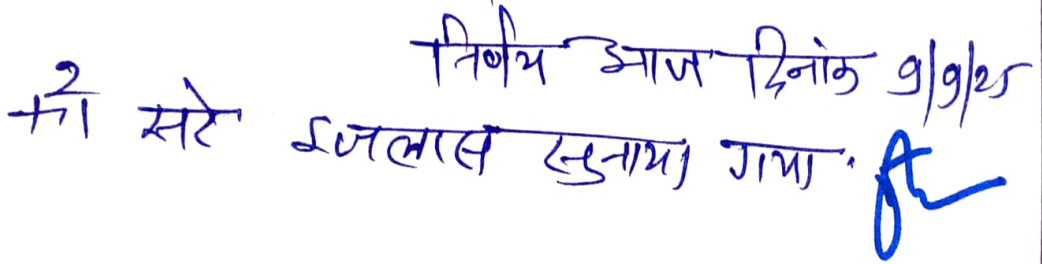 निर्णय आज दिनांक 9/9/25
को सरे इजलास सुनाया गया.